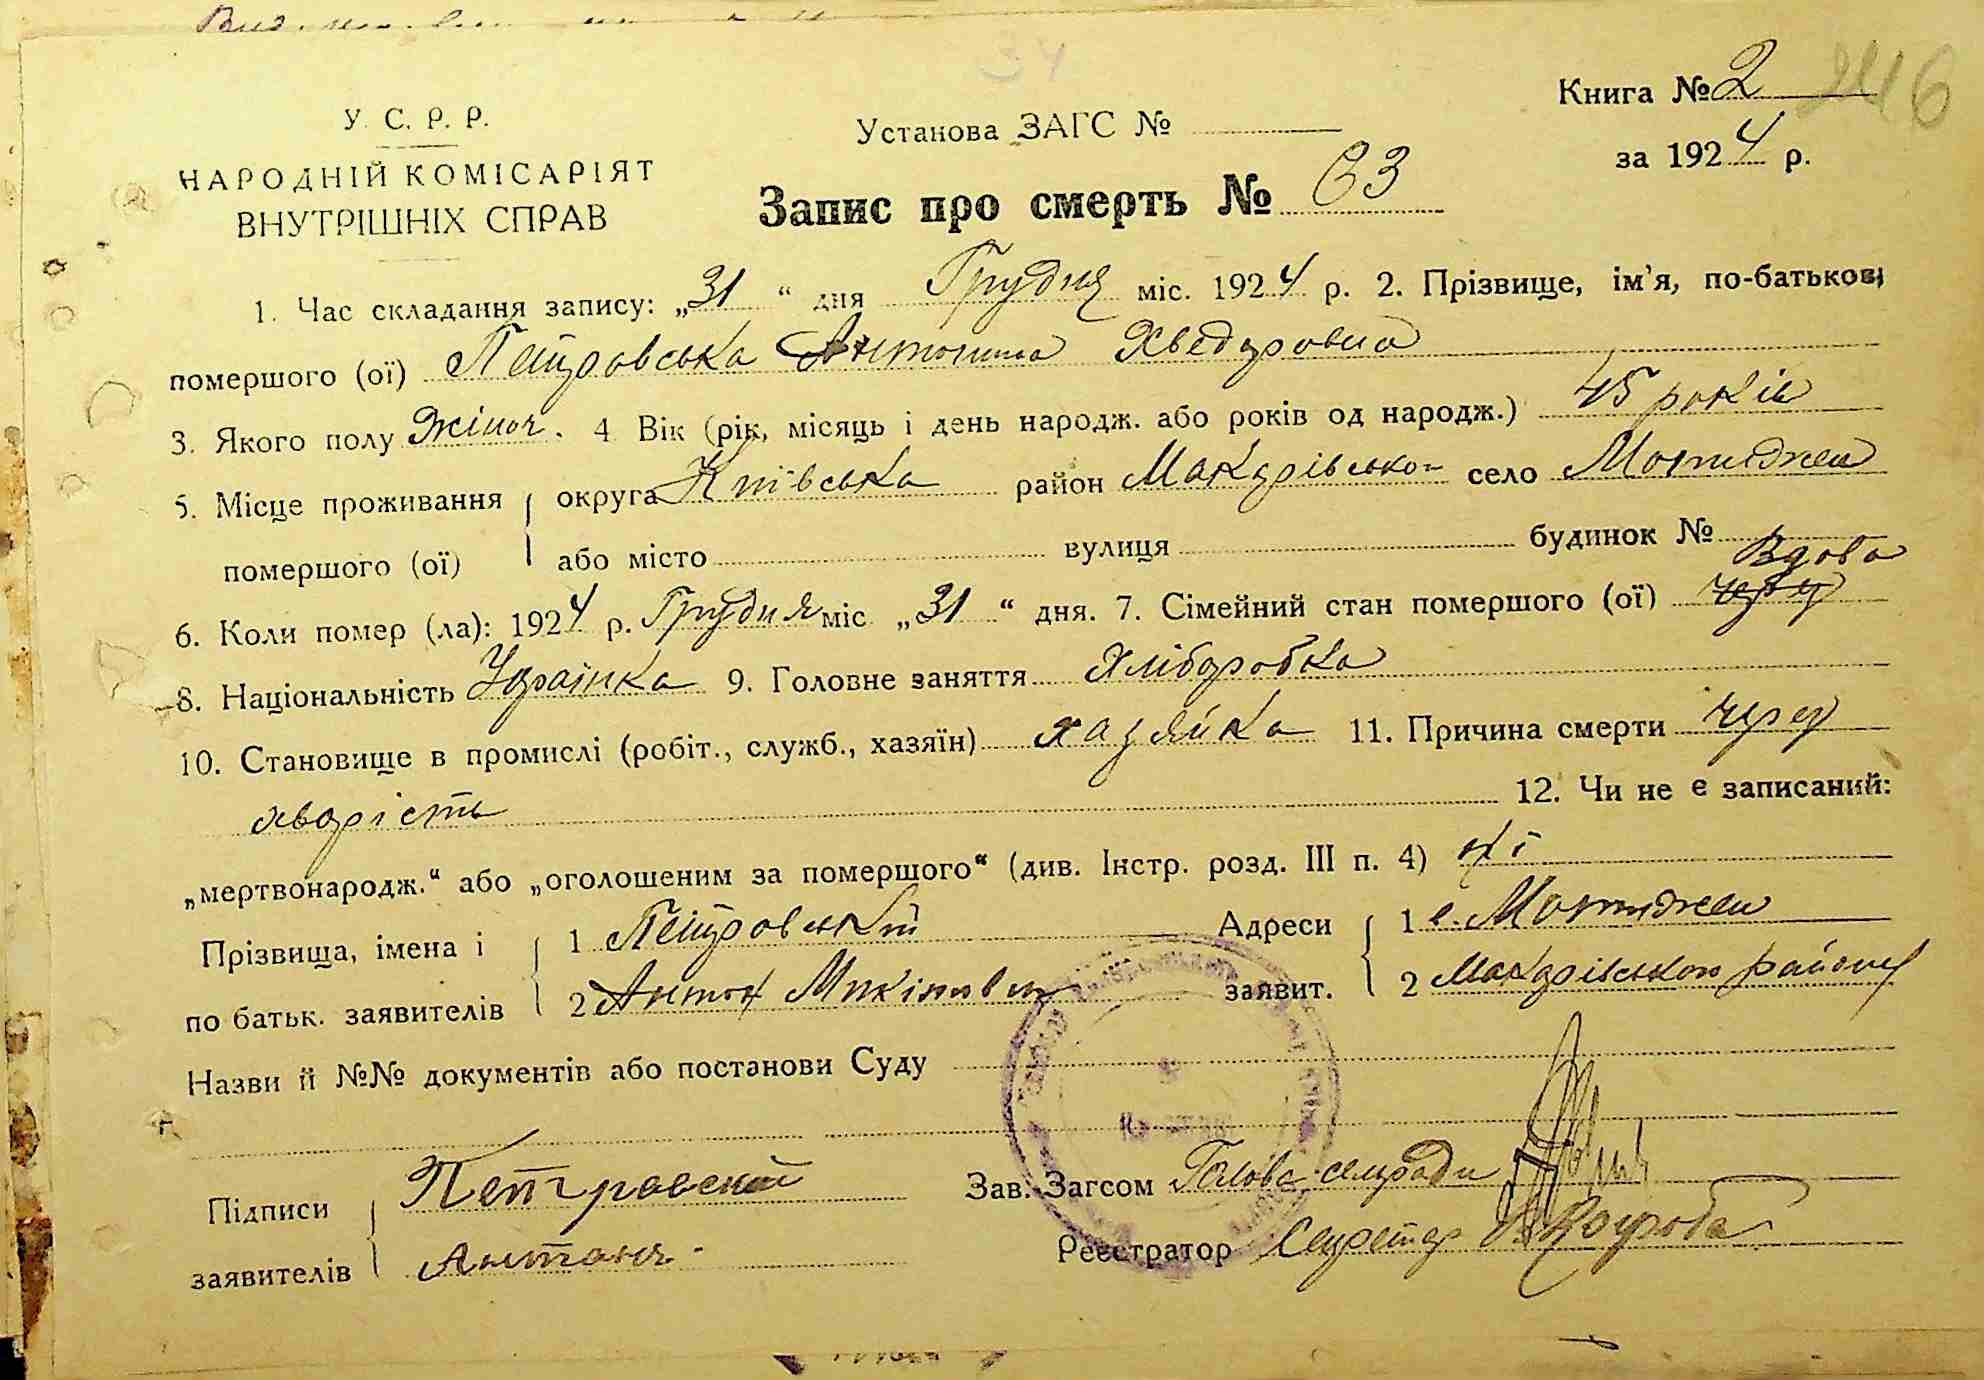 У. С. Р. Р.
НАРОДНІЙ КОМІСАРІЯТ
ВНУТРІШНІХ СПРАВ
Установа ЗАГС №
Книга № 2 246
за 1924 р.
Запис про смерть № 63
1. Час складання запису: „31“ дня Грудня міс. 1924 р. 2. Прізвище, ім'я, по-батькові
помершого (ої) Петровська Антонина Хведоровна
3. Якого полу Жіноч. 4 Вік (рік, місяць і день народж. або років од народж.) 45 років
5. Місце проживання округа Київська район Макарівськ село Мотиджен
помершого (ої) або місто вулиця будинок №
Вдова
6. Коли помер (ла): 1924 р. Грудня міс „31“ дня. 7. Сімейний стан помершого (ої) через
8. Національність Украінка 9. Головне заняття Хліборобка
10. Становище в промислі (робіт., служб., хазяїн) хазяйка 11. Причина смерти через
хворість 12. Чи не є записаний:
„мертвонародж.“ або „оголошеним за помершого“ (див. Інстр. розд. III п. 4) ні
Прізвища, імена і 1 Петровський Адреси 1 с. Мотиджен
по батьк. заявителів 2 Антон Микитович заявит. 2 Макарівського району
Назви й №№ документів або постанови Суду
Підписи Петровский Зав. Загсом Голова сельради
заявителів Антонъ Реєстратор Секретар